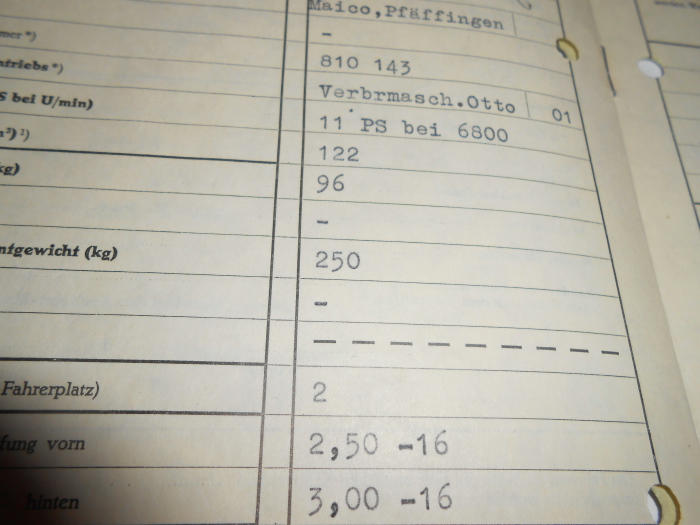 Maico, Pfäffingen
mer *) -
ntriebs *) 810 143
S bei U/min) Verbrmasch.Otto 01
11 PS bei 6800
122
kg) 96
-
ntgewicht (kg) 250
-
— — — — — — — — —
Fahrerplatz) 2
fung vorn 2,50 -16
hinten 3,00 -16